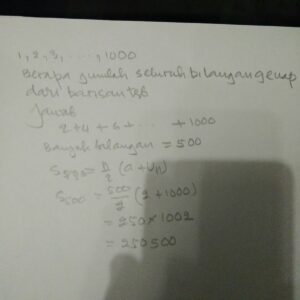 1, 2, 3, ..., 1000
Berapa jumlah seluruh bilangan genap
dari barisan tsb
Jawab
2+4+6+... +1000
Banyak bilangan = 500
S500 = n/2 (a+Un)
S500 = 500/2 (2+1000)
= 250 x 1002
= 250500